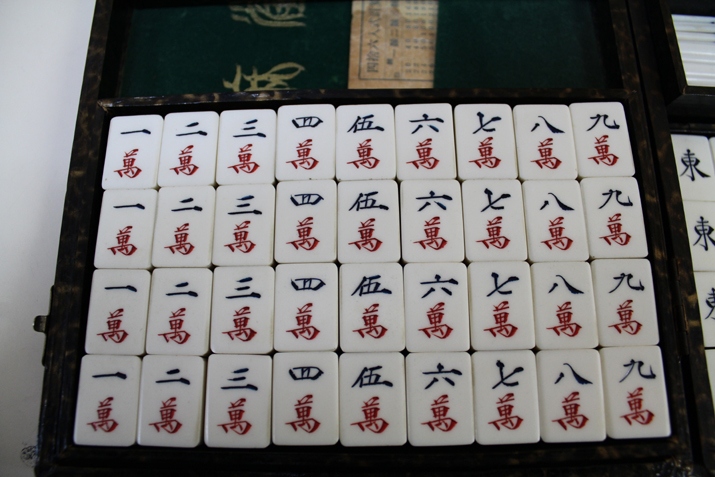 一 二 三 四 伍 六 七 八 九
萬 萬 萬 萬 萬 萬 萬 萬 萬
一 二 三 四 伍 六 七 八 九
萬 萬 萬 萬 萬 萬 萬 萬 萬
一 二 三 四 伍 六 七 八 九
萬 萬 萬 萬 萬 萬 萬 萬 萬
一 二 三 四 伍 六 七 八 九
萬 萬 萬 萬 萬 萬 萬 萬 萬
東
東
東